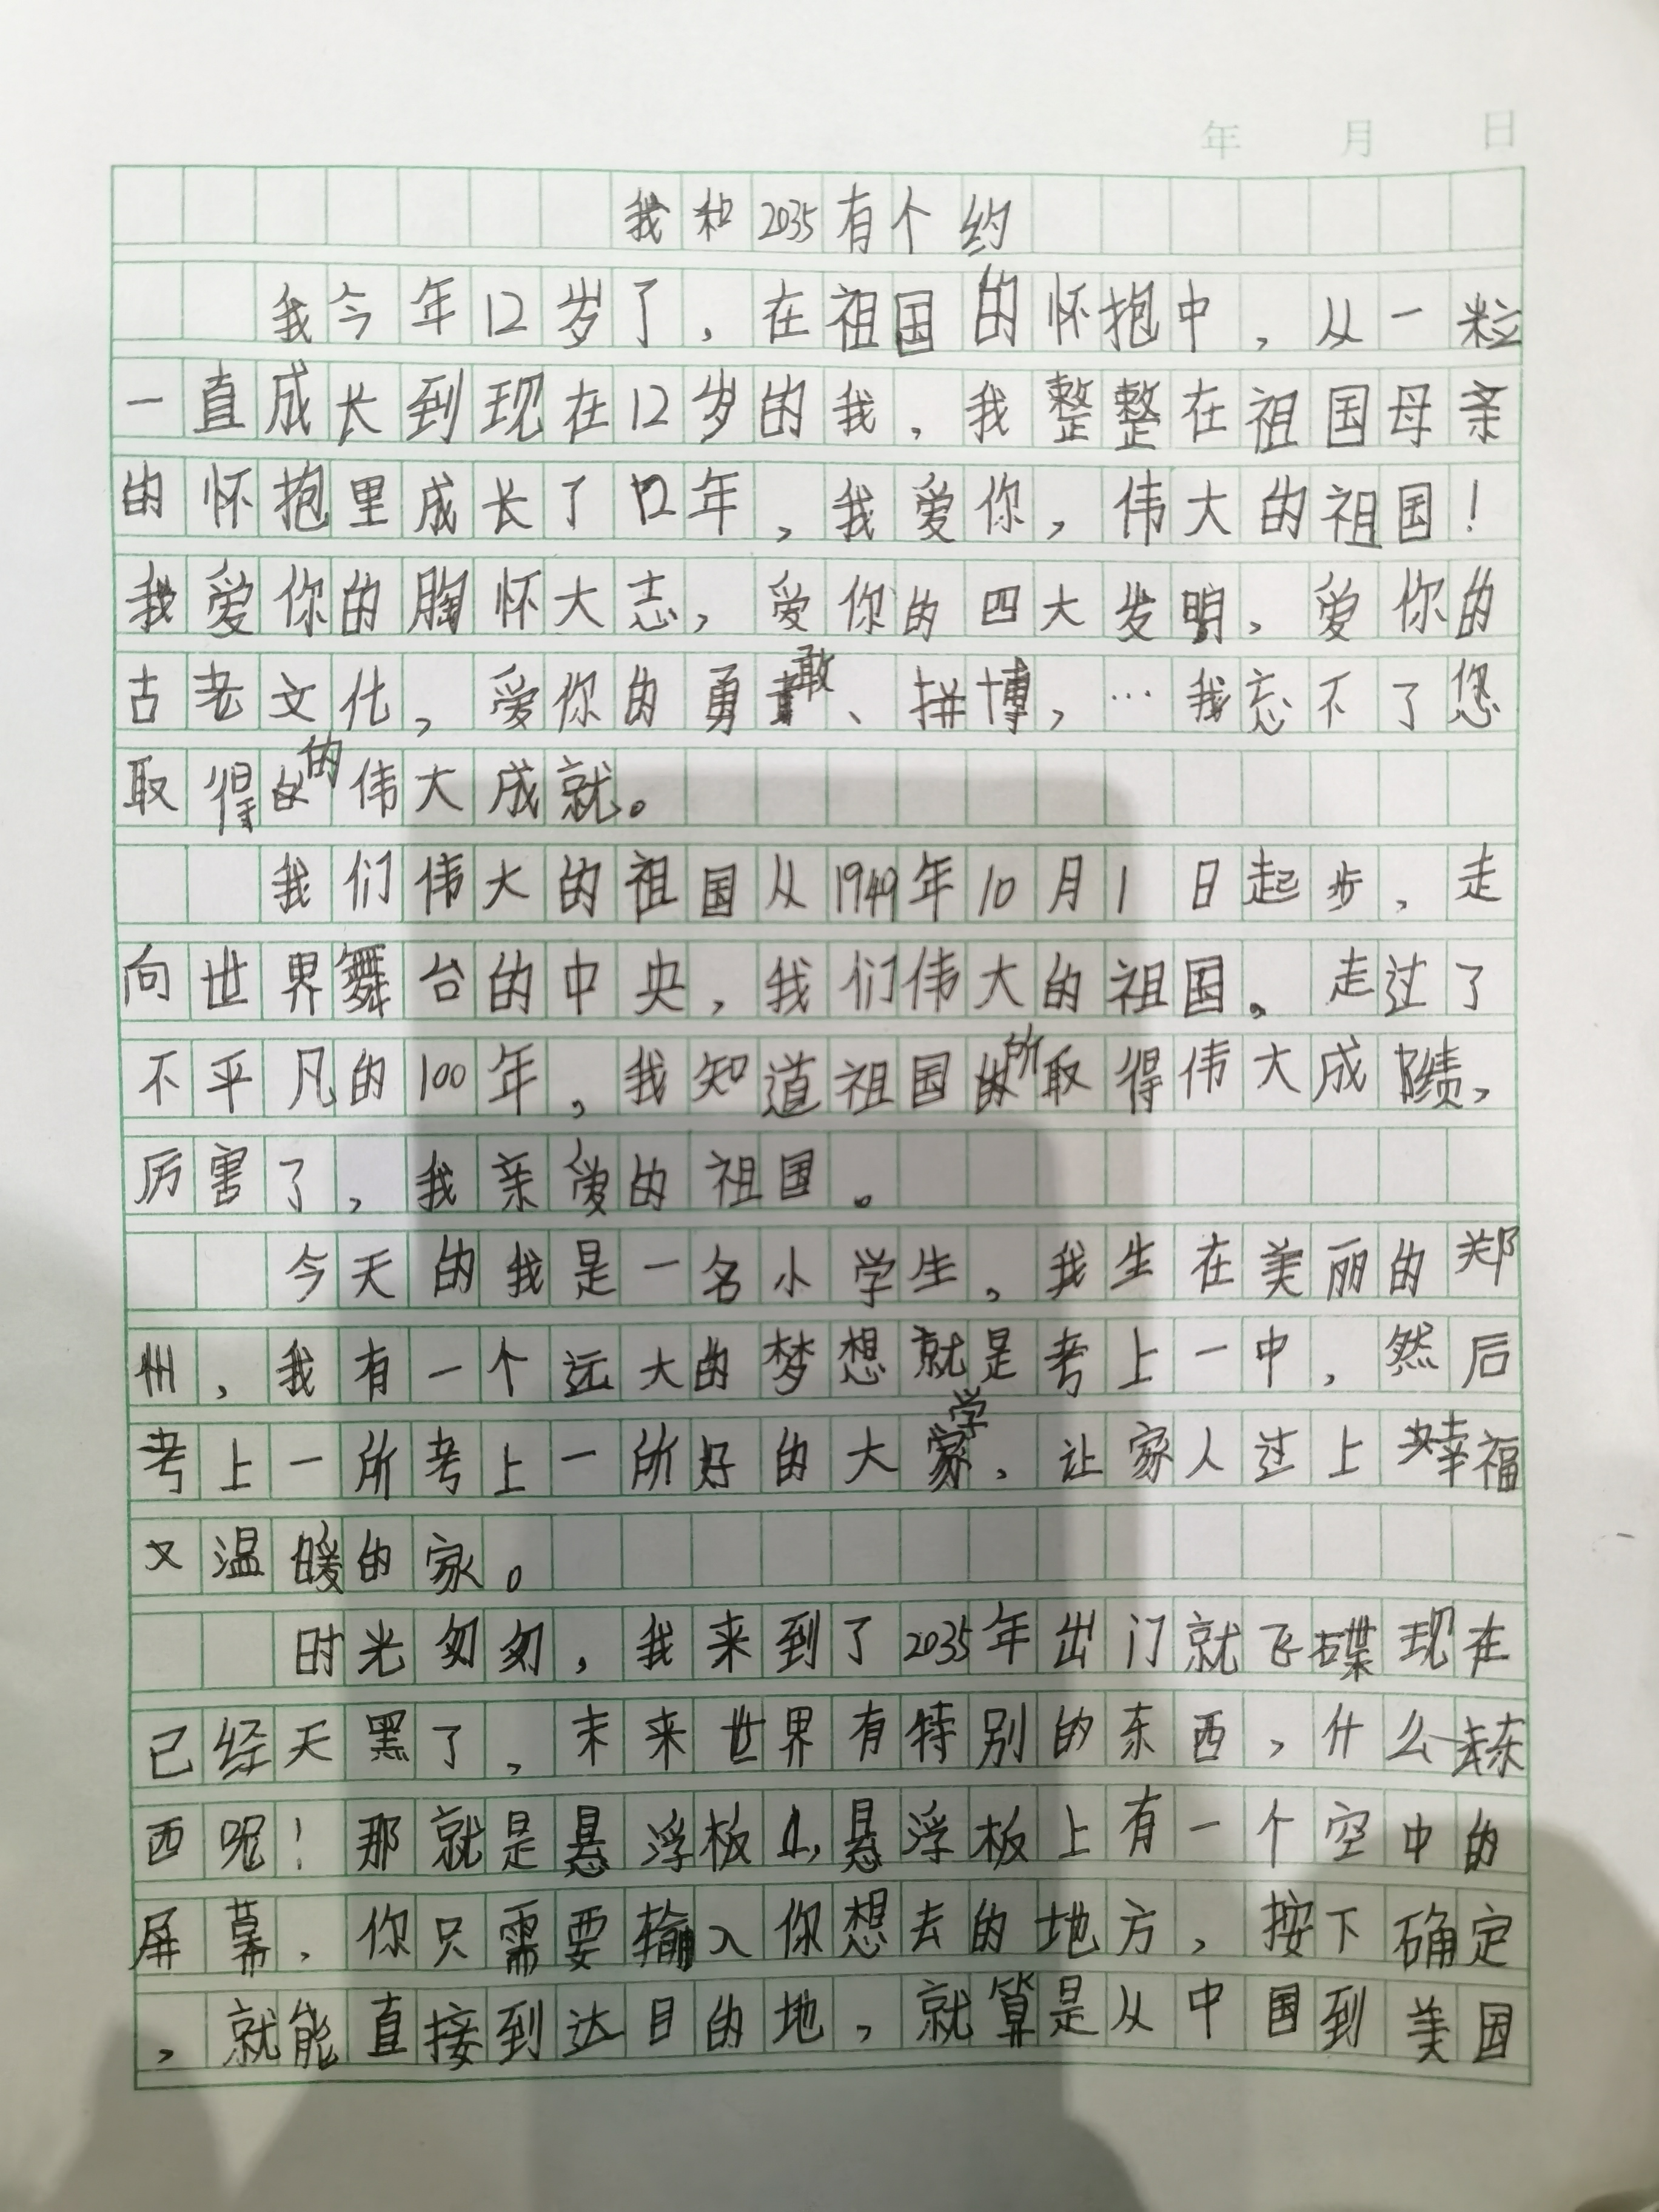 年 月 日
我和2035有个约
我今年12岁了,在祖国的怀抱中,从一粒
一直成长到现在12岁的我,我整整在祖国母亲
的怀抱里成长了12年,我爱你,伟大的祖国!
我爱你的胸怀大志,爱你的四大发明,爱你的
古老文化,爱你的勇敢、拼博,…我忘不了您
取得的伟大成就。
我们伟大的祖国从1949年10月1日起步,走
向世界舞台的中央,我们伟大的祖国。走过了
不平凡的100年,我知道祖国所取得伟大成绩,
厉害了,我亲爱的祖国。
今天的我是一名小学生。我生在美丽的郑
州,我有一个远大的梦想就是考上一中,然后
考上一所考上一所好的大学,让家人过上幸福
又温暖的家。
时光匆匆,我来到了2035年出门就飞碟现在
已经天黑了,未来世界有特别的东西,什么东
西呢!那就是悬浮板,悬浮板上有一个空中的
屏幕,你只需要输入你想去的地方,按下确定
,就能直接到达目的地,就算是从中国到美国